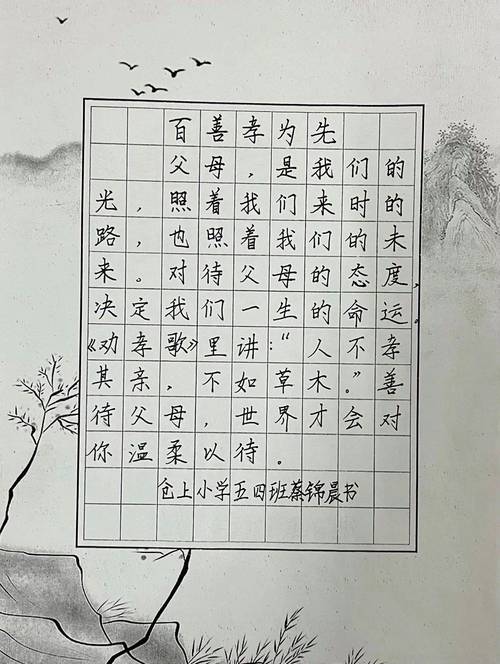 百善孝为先
父母，是我们的
光，照着我们来时的
路，也照着我们的未
来。对待父母的态度，
决定我们一生的命运。
《劝孝歌》里讲：“人不孝
其亲，不如草木。”善
待父母，世界才会对
你温柔以待。
仓上小学五四班蔡锦晨书